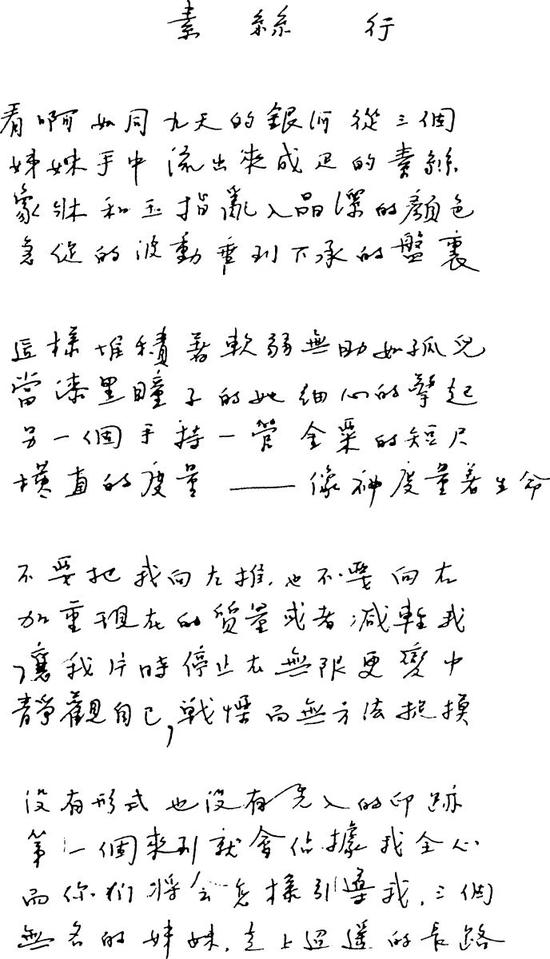 素絲行
看啊如同九天的銀河從三個
姊妹手中流出來成疋的素絲
象牀和玉指亂入晶瑩的顏色
急促的波動垂到下承的盤裏
這樣堆積著軟弱無助如孤兒
當漆黑瞳子的她細心的擎起
另一個手持一管金栗的短尺
橫直的度量——像神度量著生命
不要把我向左推.也不要向右
加重現在的質量或者減輕我
讓我片時停止在無限更變中
靜觀自己,戰慄而無方法捉摸
沒有形式也沒有先入的印跡
第一個來到就會佔據我全心
而你們將會怎樣引導我.三個
無名的姊妹.走上迢遙的長路